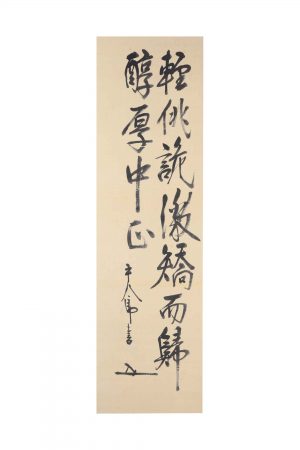 輕佻詭激矯而歸
醇厚中正